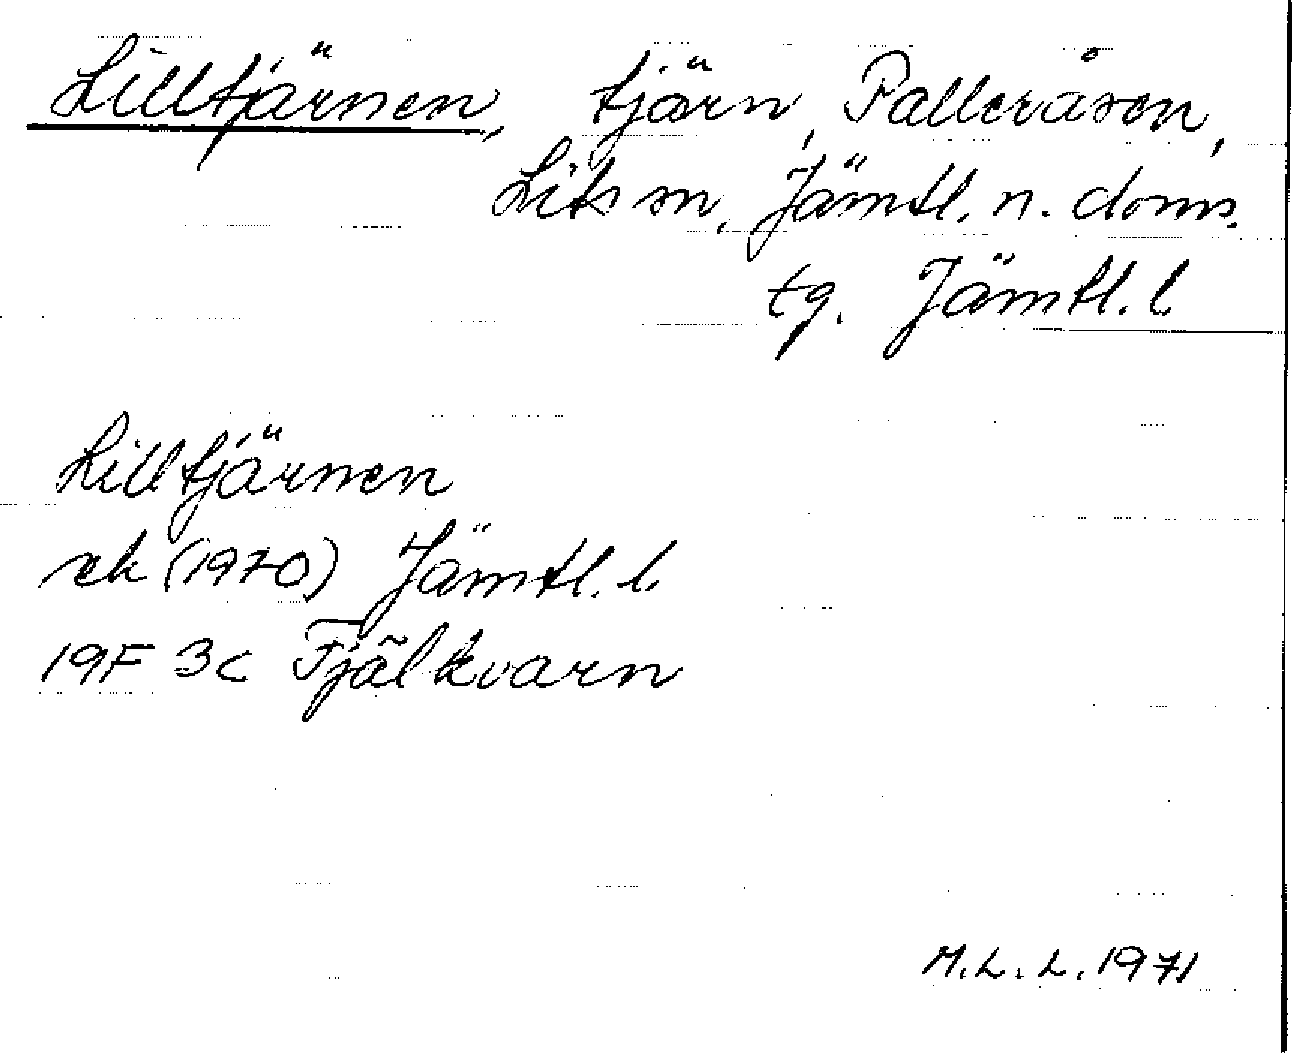 Lilltjärnen, tjärn, Palleråsen,
Lits sn, Jämtl. n. doms.
tg. Jämtl. l.
Lilltjärnen
ek (1970) Jämtl. l.
19F 3c Fjälkvarn
M.L.L. 1971